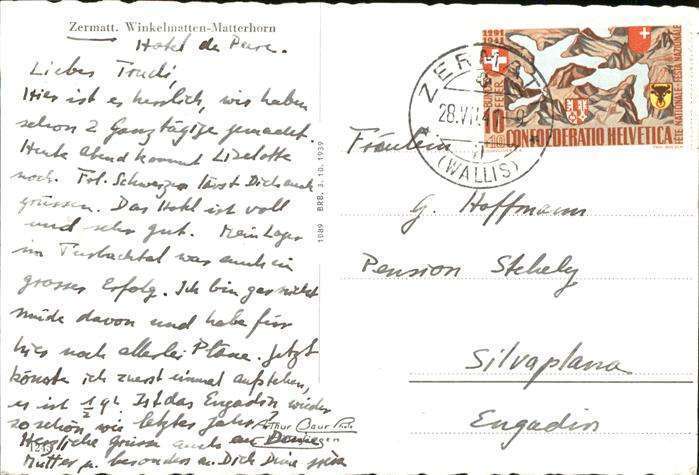 Zermatt. Winkelmatten-Matterhorn
Hotel de Peure.
Liebes Trudi,
Hier ist es herrlich, wir haben
schon 2 Ganztägige gemacht.
Heute abend kommt Liselotte
noch. Frl. Schwarzer lässt Dich auch
grüssen. Das Hotel ist voll
und sehr gut. Mein Lager
im Turbachtal war auch ein
grosser Erfolg. Ich bin gar nicht
müde davon und habe für
hier noch allerlei Pläne. Jetzt
könnte ich zuerst einmal aufstehen,
es ist ½ 9h Ist das Engadin wieder
so schön wie letztes Jahr?
Herzliche grüsse auch an Deine
Mutter u. besonders an Dich Deine
Arthur Baur Photo
1889 BRB. 3. 10. 1939
ZERMATT
28.VII.41
(WALLIS)
1291
1941
BUNDESFEIER
10
+10
CONFOEDERATIO HELVETICA
FÊTE NATIONALE · FESTA NAZIONALE
Fräulein
G. Hoffmann
Pension Stehely
Silvaplana
Engadin